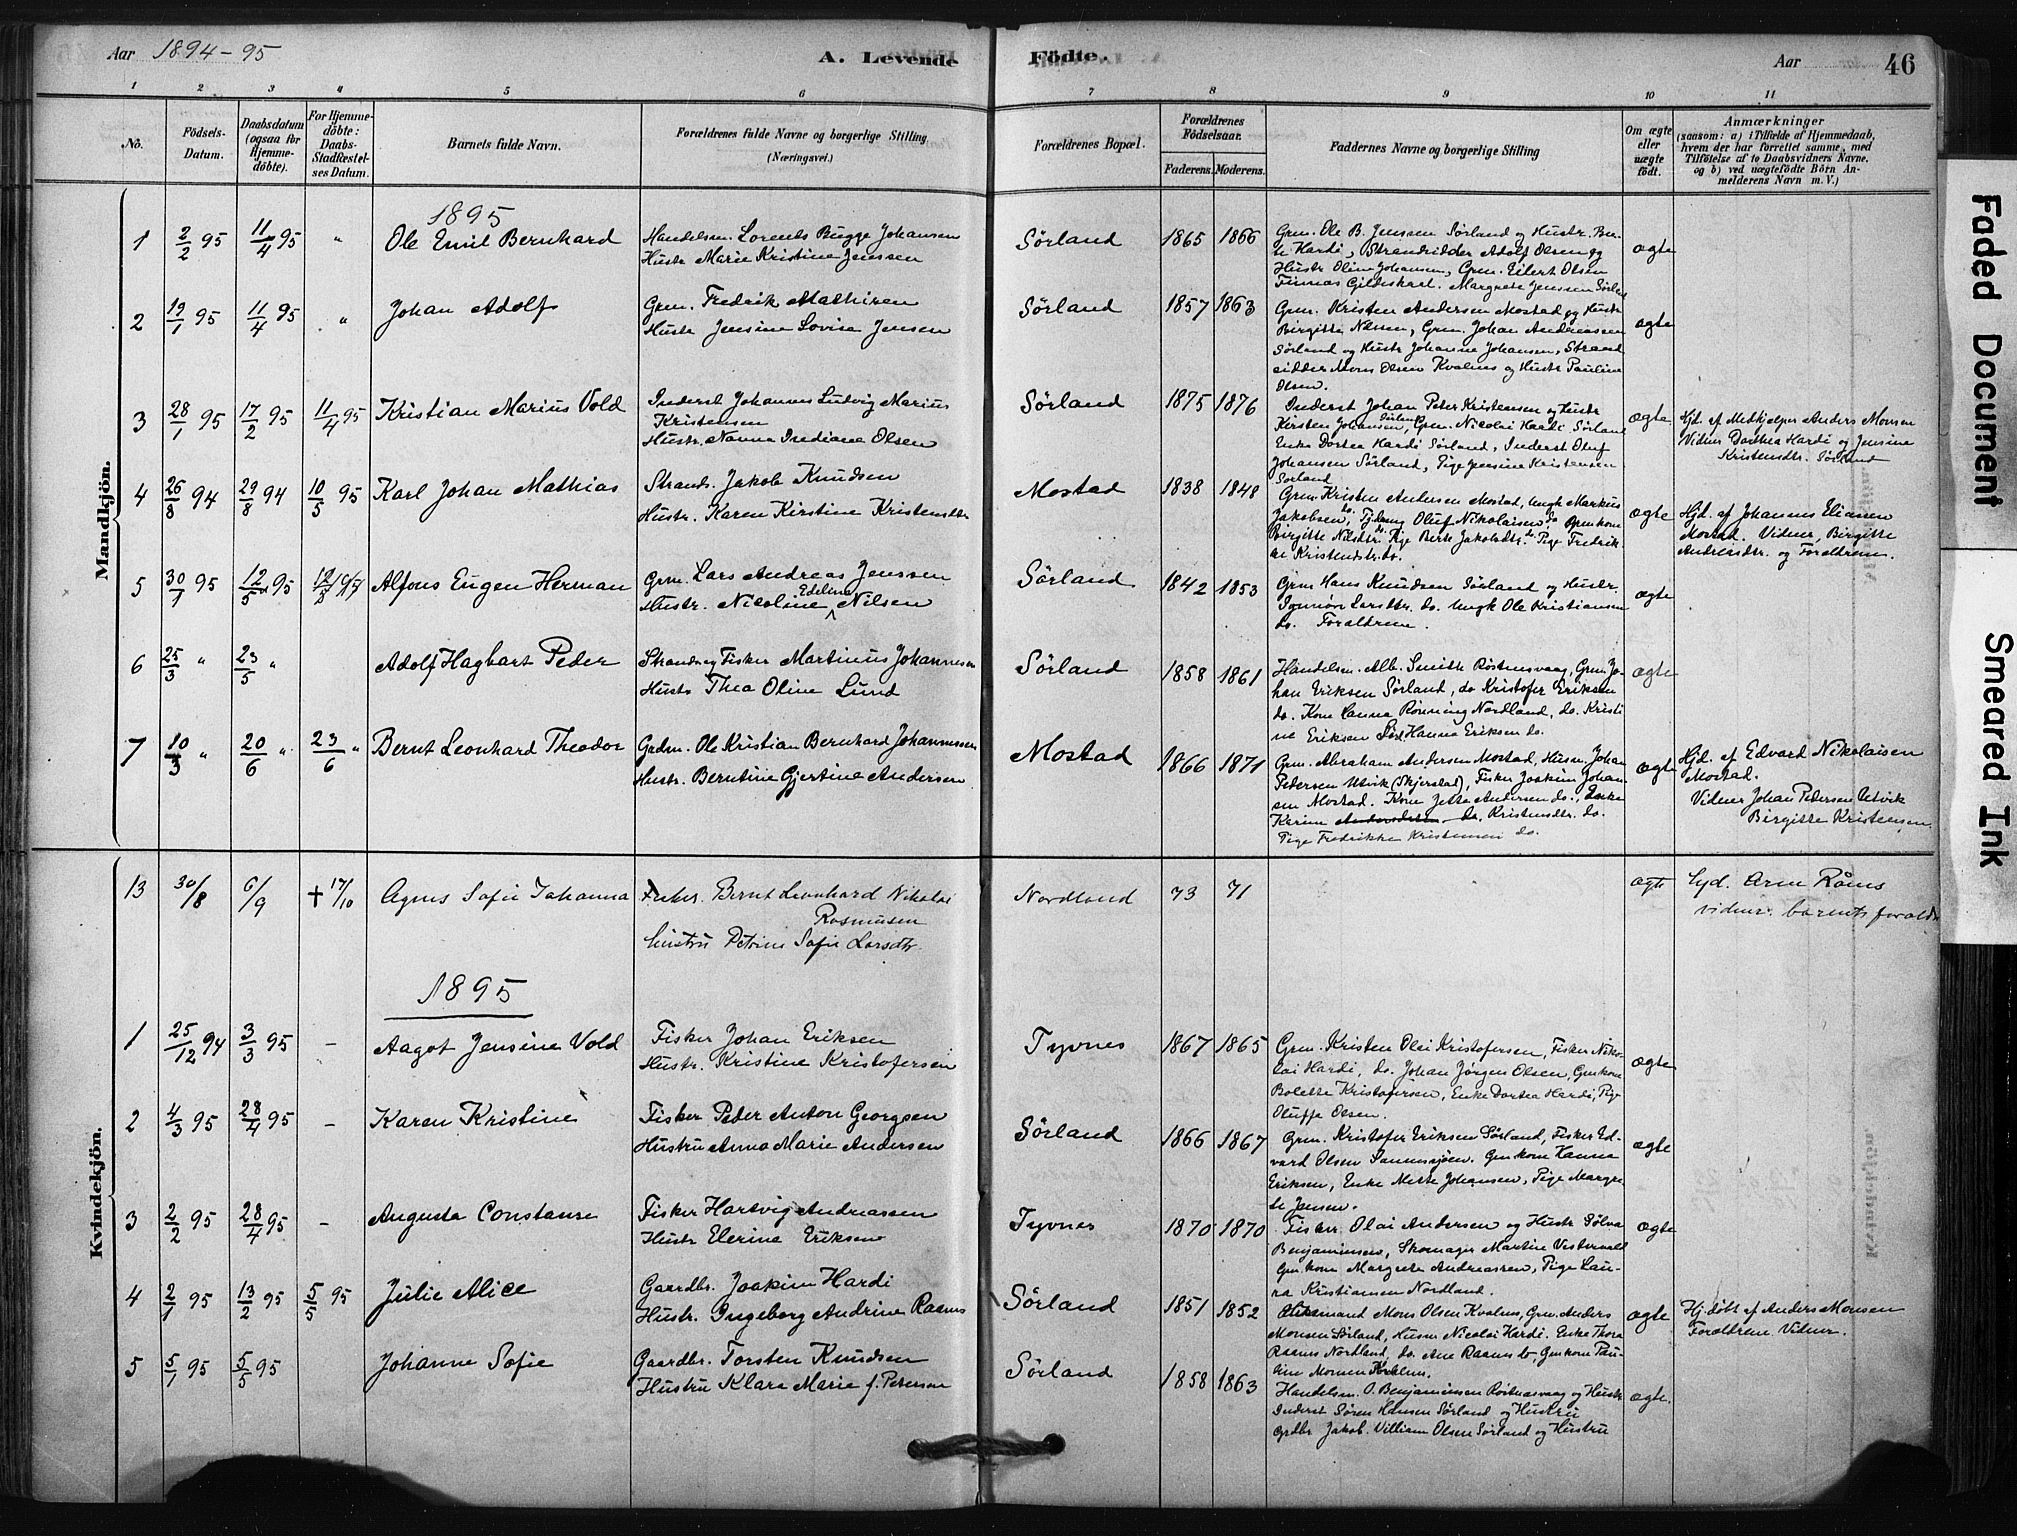 Aar 1894-95
A. Levende
Födte.
Aar
46
1 2 3 4 5 6 7 8 9 10 11
No.
Födsels-
Datum.
Daabsdatum
(ogsaa for
Hjemme-
döbte).
For Hjemme-
döbte:
Daabs-
Stadfæstel-
ses Datum.
Barnets fulde Navn.
Forældrenes fulde Navne og borgerlige Stilling
(Næringsvei.)
Forældrenes Bopæl.
Forældrenes
Födselsaar.
Faderens. Moderens.
Faddernes Navne og borgerlige Stilling
Om ægte
eller
uægte
födt.
Anmærkninger
(saasom: a) i Tilfælde af Hjemmedaab,
hvem der har forrettet samme, med
Tilföielse af to Daabsvidners Navne.
og b) ved uægtefödte Börn An-
melderens Navn m. V.)
Mandkjön.
1895
1 2/2 95 11/4 95 " Ole Emil Bernhard
Handelsm. Lorents Bugge Johansen
Hustr Marie Kristine Jenssen
Sørland 1865 1866
Grm. Ole B. Jenssen Sørland og Hustr. Be-
te Hardi, Strandsidder Adolf Olsen og
Hustr Oline Johansen, Grm. Eilert Olsen
Finnæs Gildeskaal. Margrete Jenssen Sørland
ægte
2 19/1 95 11/4 95 " Johan Adolf
Grm. Fredrik Mathisen
Hustr Jensine Lovise Jensen
Sørland 1857 1863
Grm. Kristen Andersen Mostad og Hustr
Birgitte Nilsen, Grm. Johan Andreassen
Sørland og Hustr Johanne Johansen, Strand
sidder Mons Olsen Kvalnes og Hustr Pauline
Olsen.
ægte
3 28/1 95 17/2 95 11/4 95 Kristian Marius Vold
Inderst Johannes Ludvig Marius
Kristensen
Hustr. Nanna Indiane Olsen
Sørland 1875 1876
Inderst Johan Peter Kristensen og Hustr
Kersten Johansen, Sørland Grm. Nicolai Hardi Sørland
Enke Dortea Hardi Sørland, Inderst Oluf
Johansen Sørland, Pige Jensine Kristensen
Sørland
ægte
Hjd. af Medhjelper Anders Monsen
Vidner Dorthea Hardi og Jensine
Kristensdtr. Sørland
4 26/8 94 29/8 94 10/5 95 Karl Johan Mathias
Strands. Jakob Knudsen
Hustr. Karen Kirstine Kristensdtr
Mostad 1838 1848
Grm Kristen Andersen Mostad, Ungk Markus
Jakobsen do., Oluf Nikolaisen do Grmkone
Birgitte Nilsdtr. do. Pige Berte Jakobsdtr. do. Pige Fredrik-
ke Kristensdtr. do.
ægte
Hjd. af Johannes Eliassen
Mostad. Vidner, Birgitte
Andreasdtr. og Forældrene.
5 30/1 95 12/5 95 Alfons Eugen Herman
Grm. Lars Andreas Jenssen
Hustr. Nicoline Edeline Nilsen
Sørland 1842 1853
Grm Hans Knudsen Sørland og Hustr.
Larsdtr. do. Ungk Ole Kristiansen
do. Forældrene.
ægte
6 25/3 " 23/5 " Adolf Hagbart Peder
Strands og Fisker Martinus Johannesen
Hustr Thea Oline Lund
Sørland 1858 1861
Handelsm. Alb. Smith Røstnesvaag, Grm. Jo-
han Eriksen Sørland, do Kristofer Eriksen
do. Kone Hanna Rønning Nordland, do. Kristi
ne Eriksen Hanna Eriksen do.
ægte
7 10/3 " 20/6 " 23/6 " Bernt Leonhard Theodor
Grdm. Ole Kristian Bernhard Johannessen
Hustr. Berntine Gjertine Andersen
Mostad 1866 1871
Grm. Abraham Andersen Mostad, Husm. Johan
Pedersen Utvik (Skjerstad), Fisker Joakim Johan
sen Mostad. Kone Jette Andersen do., Enke
Karine Kristensdtr. do.
Pige Fredrikke Kristensen do.
ægte
Hjd. af Edvard Nikolaisen
Mostad.
Vidner Johan Pedersen Utvik
Birgitte Kristensen
Kvindekjön.
13 30/8 6/9 † 17/10 Agnes Sofie Johanna
Fisker. Bernt Leonhard Nikolai
Rasmusen
hustru Petrine Sofie Larsdtr.
Nordland 73 71
ægte
hjd. Arne Rånes
vidner: barnets forældre
1895
1 25/12 94 3/3 95 - Aagot Jensine Vold
Fisker Johan Eriksen
Hustr. Kristine Kristofersen
Tyvnes 1867 1865
Grm. Kristen Olai Kristofersen, Fisker Niko-
lai Hardi, do. Johan Jørgen Olsen, Gmkone
Bolette Kristofersen, Enke Dortea Hardi, Pige
Oluffe Olsen.
ægte
2 4/3 95 28/4 95 - Karen Kristine
Fisker Peder Anton Georgsen
Hustru Anna Marie Andersen
Sørland 1866 1867
Grm. Kristofer Eriksen Sørland, Fisker Ed-
vard Olsen Sannessjøen. Gmkone Hanna
Eriksen, Enke Mette Johansen, Pige Margre
te Jensen.
ægte
3 2/2 95 28/4 95 - Augusta Constanse
Fisker Hartvig Andreassen
Hustr Elerine Eriksen
Tyvnes 1870 1870
Fisker Olai Andersen og Hustr Sølva
Benjaminsen, Skomager Martin Vestervold
Gmkone Margrete Andreassen, Pige Lau-
ra Kristiansen Nordland.
ægte
4 2/1 95 13/2 95 5/5 95 Julie Alice
Gaardbr. Joakim Hardi
Hustr. Ingeborg Andrine Raanes
Sørland 1851 1852
Mons Olsen Kvalnes, Grm. Anders
Monsen Sørland, Husm Nicolai Hardi. Enke Thora
Raanes Nordland, do. Ane Raanes do, Gmkone Pau-
line Monsen Kvalnes.
ægte
Hj. døbt af Anders Monsen
Forældrene Vidner.
5 5/1 95 5/5 95 Johanne Sofie
Gaardbr. Torsten Knudsen
Hustru Klara Marie f. Peterson
Sørland 1858 1863
Handelsm. O. Benjaminsen Røstnesvaag og Hustr
Inderst Søren Hansen Sørland og Hustru
Grdbr Jakob Villiam Olsen Sørland og Hustru
ægte.
Faded Document
Smeared Ink